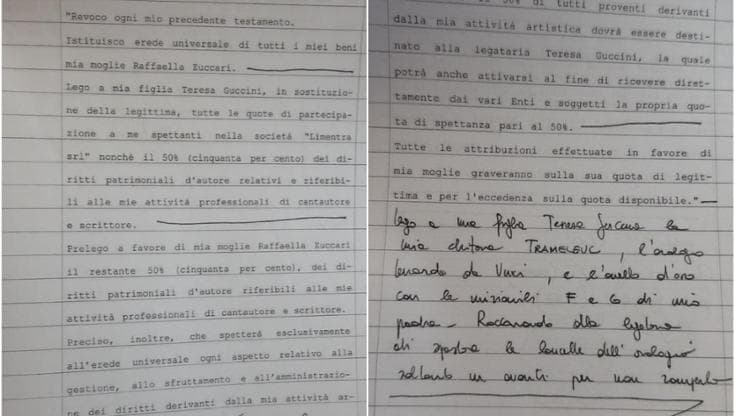 "Revoco ogni mio precedente testamento.
Istituisco erede universale di tutti i miei beni
mia moglie Raffaella Zuccari.
Lego a mia figlia Teresa Guccini, in sostituzio-
ne della legittima, tutte le quote di partecipa-
zione a me spettanti nella società "Limentra
srl" nonché il 50% (cinquanta per cento) dei di-
ritti patrimoniali d'autore relativi e riferibi-
li alle mie attività professionali di cantautore
e scrittore.
Prelego a favore di mia moglie Raffaella Zuccari
il restante 50% (cinquanta per cento), dei di-
ritti patrimoniali d'autore riferibili alle mie
attività professionali di cantautore e scrittore.
Preciso, inoltre, che spetterà esclusivamente
all'erede universale ogni aspetto relativo alla
gestione, allo sfruttamento e all'amministrazio-
ne dei diritti derivanti dalla mia attività ar-
50% di tutti proventi derivanti
dalla mia attività artistica dovrà essere desti-
nato alla legataria Teresa Guccini, la quale
potrà anche attivarsi al fine di ricevere diret-
tamente dai vari Enti e soggetti la propria quo-
ta di spettanza pari al 50%.
Tutte le attribuzioni effettuate in favore di
mia moglie graveranno sulla sua quota di legit-
tima e per l'eccedenza sulla quota disponibile."
Lego a mia figlia Teresa Guccini la
mia chitarra TRAMELEUC, l'orologio
Leonardo da Vinci, e l'anello d'oro
con le iniziali F e G di mio
padre - Raccomando alla
di spostare le lancette dell'orologio
soltanto in avanti per non romperlo